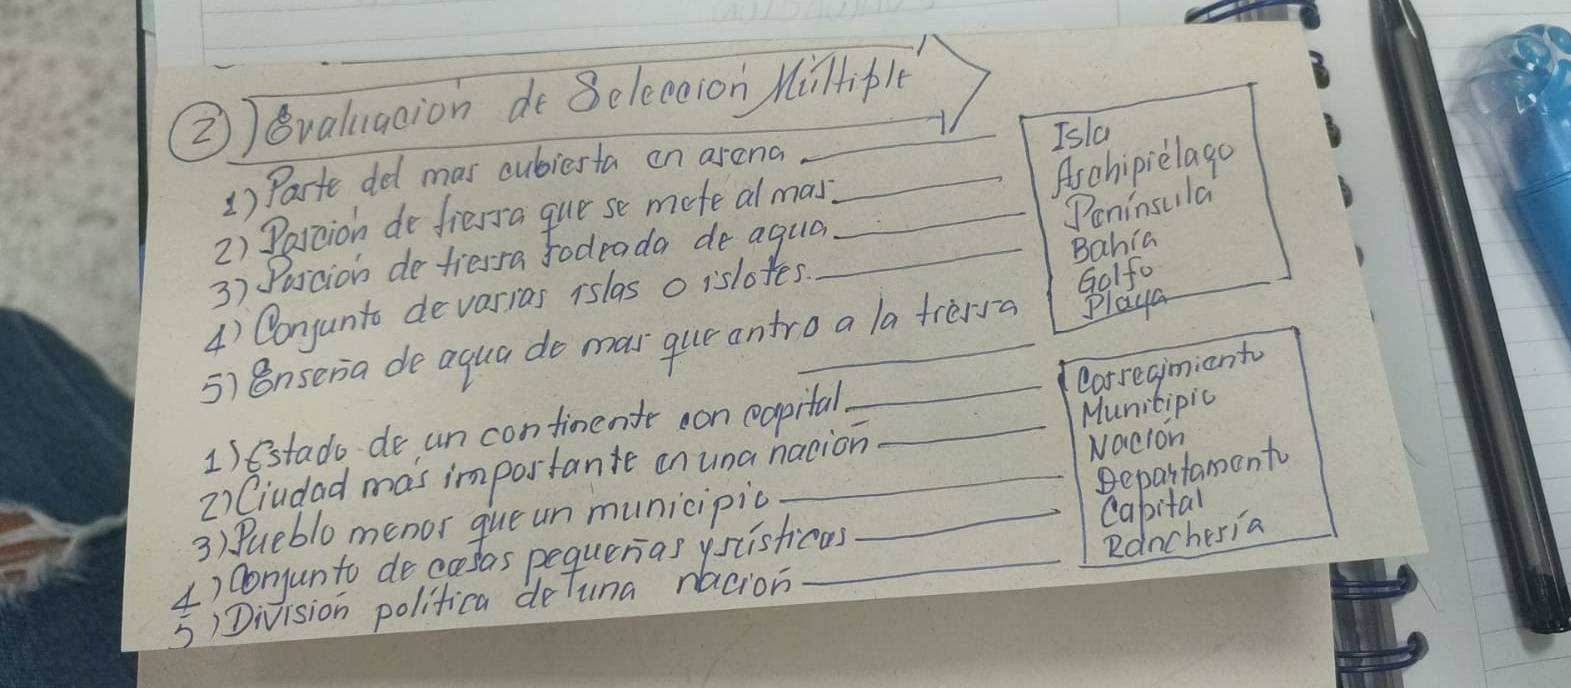 2) Evaluacion de Seleccion Múltiple
1) Parte del mar cubierta en arena
2) Porción de tierra que se mete al mar.
3) Porción de tierra rodeada de agua
4) Conjunto de varias islas o islotes.
5) Enseña de agua de mar que entro a la tierra
Isla
Archipiélago
Península
Bahía
Golfo
Playa
1) Estado de un continente con capital.
2) Ciudad más importante en una nación
3) Pueblo menor que un municipio
4) Conjunto de casas pequeñas y rústicas
5) División política de una nación
Corregimiento
Municipio
Nación
Departamento
Capital
Ranchería